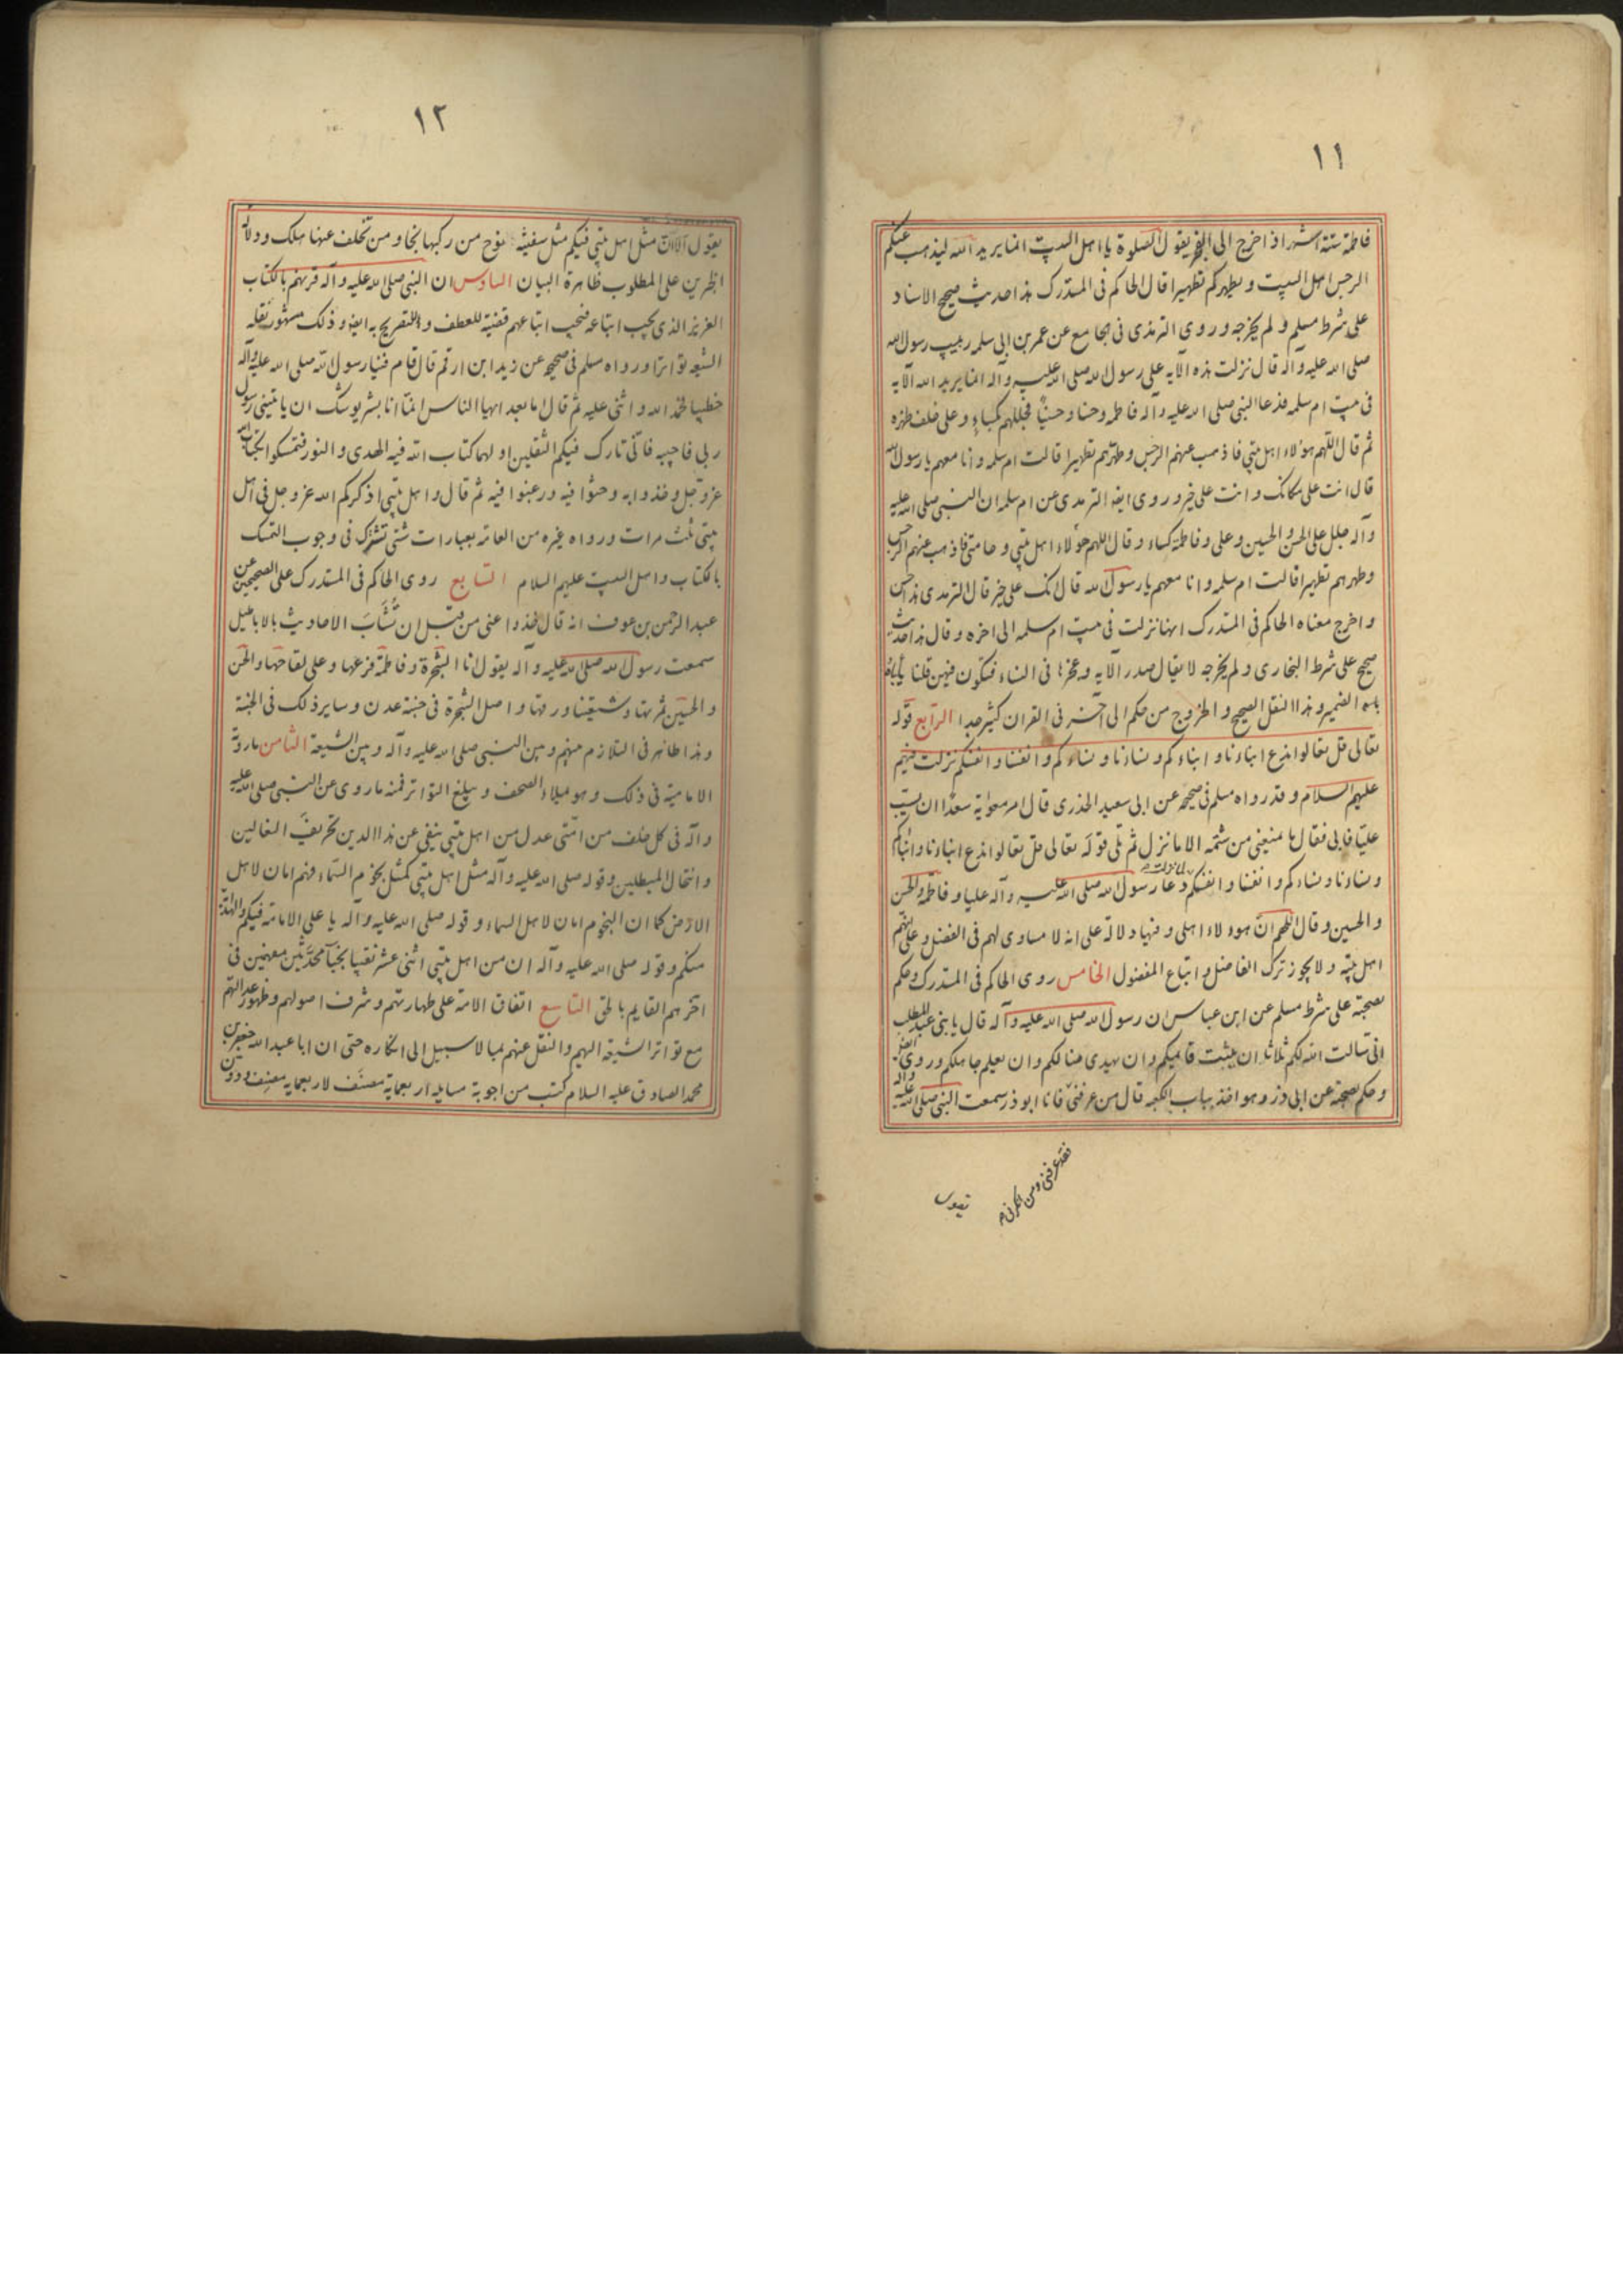 ١١
فاطمة ستة اشهر اذا خرج الى الفجر يقول الصلوة يا اهل البيت انما يريد الله ليذهب عنكم
الرجس اهل البيت و يطهركم تطهيرا قال الحاكم فى المستدرك هذا حديث صحيح الاسناد
على شرط مسلم و لم يخرجه و روى الترمذى فى الجامع عن عمر بن ابى سلمه ربيب رسول الله
صلى الله عليه و آله قال نزلت هذه الآيه على رسول الله صلى الله عليه و آله انما يريد الله الآيه
فى بيت ام سلمه فدعا النبى صلى الله عليه و آله فاطمه و حسنا و حسينًا فجللهم بكساءٍ و على خلف ظهره
ثم قال اللهم هؤلاء اهل بيتى فاذهب عنهم الرجس و طهرهم تطهيرا قالت ام سلمه و انا معهم يا رسول الله
قال انت على مكانك و انت على خير و روى ايضا الترمذى عن ام سلمه ان النبى صلى الله عليه
و آله جلل على الحسن و الحسين و على و فاطمة كساء و قال اللهم هؤلاء اهل بيتى و حامتى فاذهب عنهم الرجس
و طهرهم تطهيرا قالت ام سلمه و انا معهم يا رسول الله قال انك على خير قال الترمذى هذا حسن
و اخرج معناه الحاكم فى المستدرك انها نزلت فى بيت ام سلمه الى اخره و قال هذا حديث
صحيح على شرط البخارى و لم يخرجه لا يقال صدر الآيه و عجزها فى النساء فتكون فيهن قلنا يأباه
الضمير و هذا النقل الصحيح و الخروج من حكم الى آخر فى القران كثير جدا الرابع قوله
تعالى قل تعالوا ندع ابناءنا و ابناءكم و نساءنا و نساءكم و انفسنا و انفسكم نزلت فيهم
عليهم السلام و قد رواه مسلم فى صحيحه عن ابى سعيد الخدرى قال امر معوية سعدًا ان يسب
عليّا فابى فقال ما يمنعنى من شتمه الا ما نزل ثم تلى قوله تعالى قل تعالوا ندع ابناءنا و ابناءكم
و نساءنا و نساءكم و انفسنا و انفسكم دعا رسول الله صلى الله عليه و آله عليا و فاطمة و الحسن
لما نزلت
و الحسين و قال اللهم انّ هوءلاء اهلى و فيها دلالة على انه لا مساوى لهم فى الفضل و على انهم
اهل بيته و لا يجوز ترك الفاضل و اتباع المفضول الخامس روى الحاكم فى المستدرك و حكم
بصحته على شرط مسلم عن ابن عباس ان رسول الله صلى الله عليه و آله قال يا بنى عبد المطلب
انى سالت الله لكم ثلاثا ان يثبت قائمكم و ان يهدى ضالكم و ان يعلم جاهلكم و روى ايضا
و حكم بصحته عن ابى ذر و هو اخذ بباب الكعبه قال من عرفنى فانا ابو ذر سمعت النبى صلى الله عليه و آله
فقد عرفنى و من انكرنى
يقول
١٢
يقول الا ان مثل اهل بيتى فيكم مثل سفينة نوح من ركبها نجا و من تخلف عنها هلك و دلالة
الخبرين على المطلوب ظاهرة البيان السادس ان النبى صلى الله عليه و آله قرنهم بالكتاب
العزيز الذى يجب اتباعه فيجب اتباعهم قضية للعطف و للتصريح به ايضا و ذلك مشهور نقله
الشيعه تواترا و رواه مسلم فى صحيحه عن زيد ابن ارقم قال قام فينا رسول الله صلى الله عليه و آله
خطيبا فحمد الله و اثنى عليه ثم قال اما بعد ايها الناس انما انا بشر يوشك ان ياتينى رسول
ربى فاجيبه فانّى تارك فيكم الثقلين اولهما كتاب الله فيه الهدى و النور فتمسكوا بكتاب الله
عز و جل و خذوا به و حثوا فيه و رغبوا فيه ثم قال و اهل بيتى اذكركم الله عز و جل فى اهل
بيتى ثلث مرات و رواه غيره من العامه بعبارات شتى تشترك فى وجوب التمسك
بالكتاب و اهل البيت عليهم السلام السابع روى الحاكم فى المستدرك على الصحيحين عن
عبد الرحمن بن عوف انه قال خذوا عنى من قبل ان تُشَابَ الاحاديث بالاباطيل
سمعت رسول الله صلى الله عليه و آله يقول انا الشجرة و فاطمة فرعها و على لقاحها و الحسن
و الحسين ثمرتها و شيعتنا ورقها و اصل الشجرة فى جنة عدن و ساير ذلك فى الجنة
و هذا ظاهر فى التلازم بينهم و بين النبى صلى الله عليه و آله و بين الشيعة الثامن ما روته
الاماميّة فى ذلك و هو ميلاء الصحف و يبلغ التواتر فمنه ما روى عن النبى صلى الله عليه
و آله فى كل خلف من امّتى عدل من اهل بيتى ينفى عن هذا الدين تحريف الغالين
و انتحال المبطلين و قوله صلى الله عليه و آله مثل اهل بيتى كمثل نجوم السّماء فهم امان لاهل
الارض كما ان النجوم امان لاهل السماء و قوله صلى الله عليه و آله يا على الامامة فيكم و الهداية
منكم و قوله صلى الله عليه و آله ان من اهل بيتى اثنى عشر نقيبا نجباً محدّثين مفهمين فى
اخرهم القايم بالحق التاسع اتفاق الامة على طهارتهم و شرف اصولهم و ظهور عدالتهم
مع تواتر الشيعة اليهم و النقل عنهم بما لا سبيل الى انكاره حتى ان ابا عبد الله جعفر بن
محمد الصادق عليه السلام كتب من اجوبة مسايله اربعماية مصنف لاربعمايه مصنف و دون